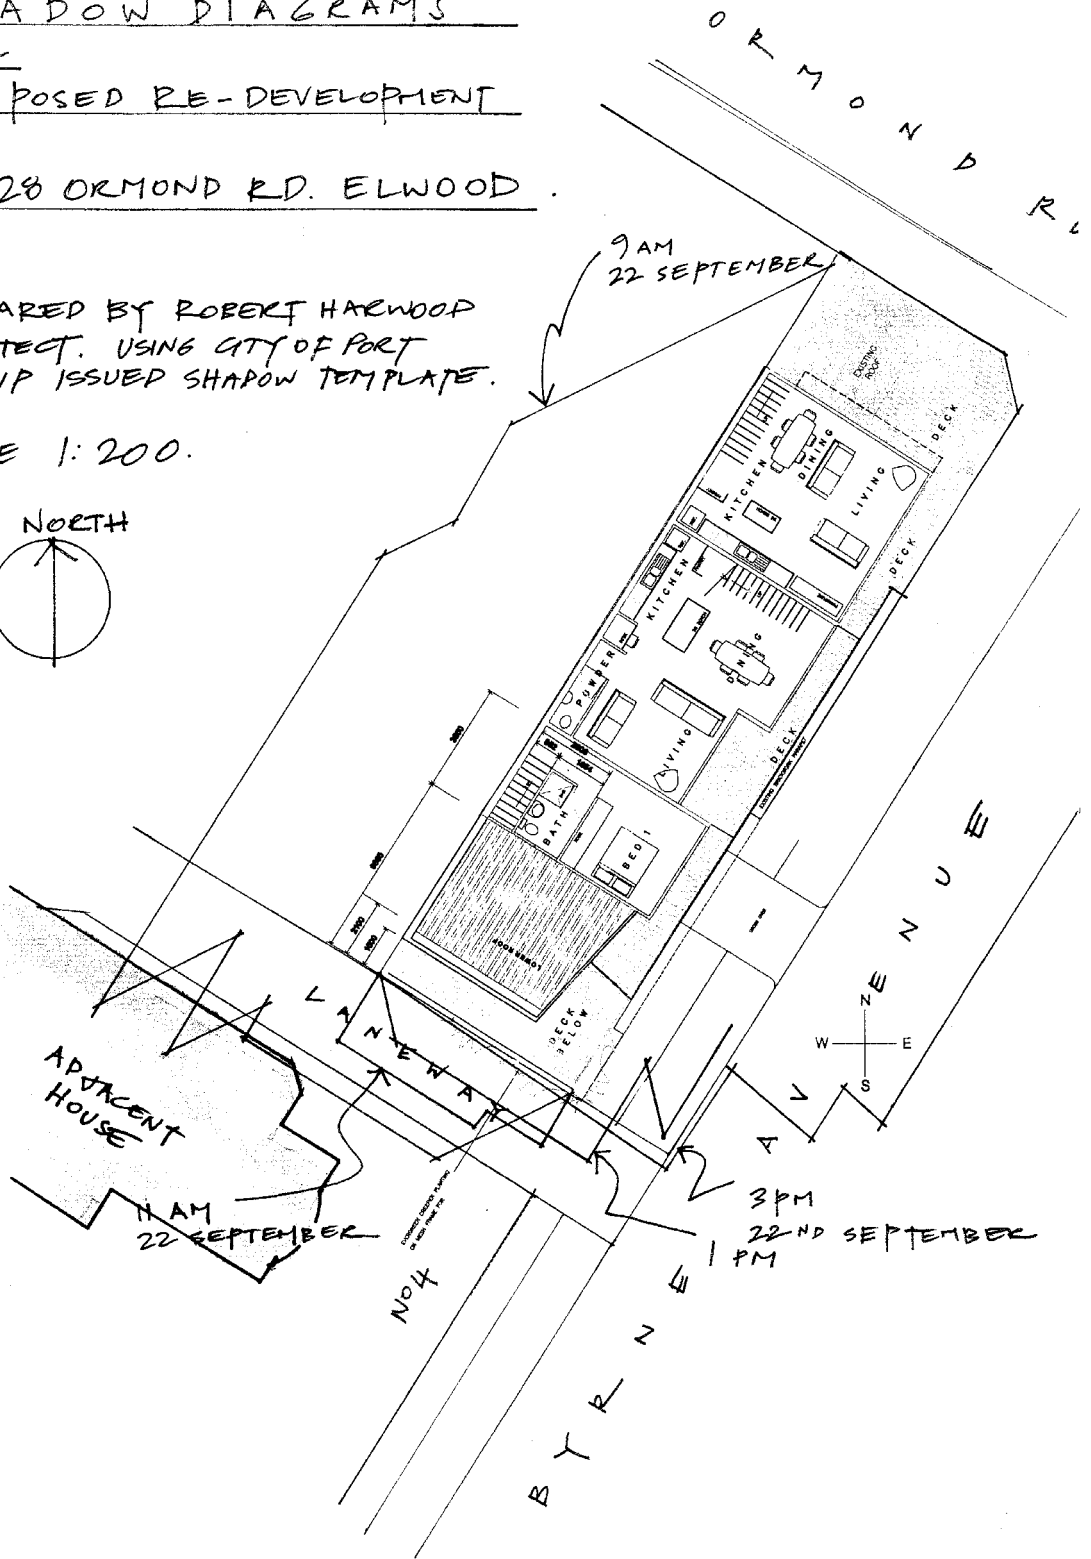 ADOW DIAGRAMS
POSED RE-DEVELOPMENT
28 ORMOND RD. ELWOOD.
ARED BY ROBERT HARWOOD
TECT. USING CITY OF PORT
IP ISSUED SHADOW TEMPLATE.
E 1:200.
NORTH
ORMOND RD
9 AM
22 SEPTEMBER
EXISTING
ROOF
DECK
DINING
LIVING
KITCHEN
DECK
KITCHEN
DINING
POWDER
LIVING
DECK
BATH
BED 1
LOWER ROOF
DECK
BELOW
LANEWAY
ADJACENT
HOUSE
11 AM
22 SEPTEMBER
No 4
3 PM
22ND SEPTEMBER
1 PM
BYRNE AVENUE
N
W
E
S